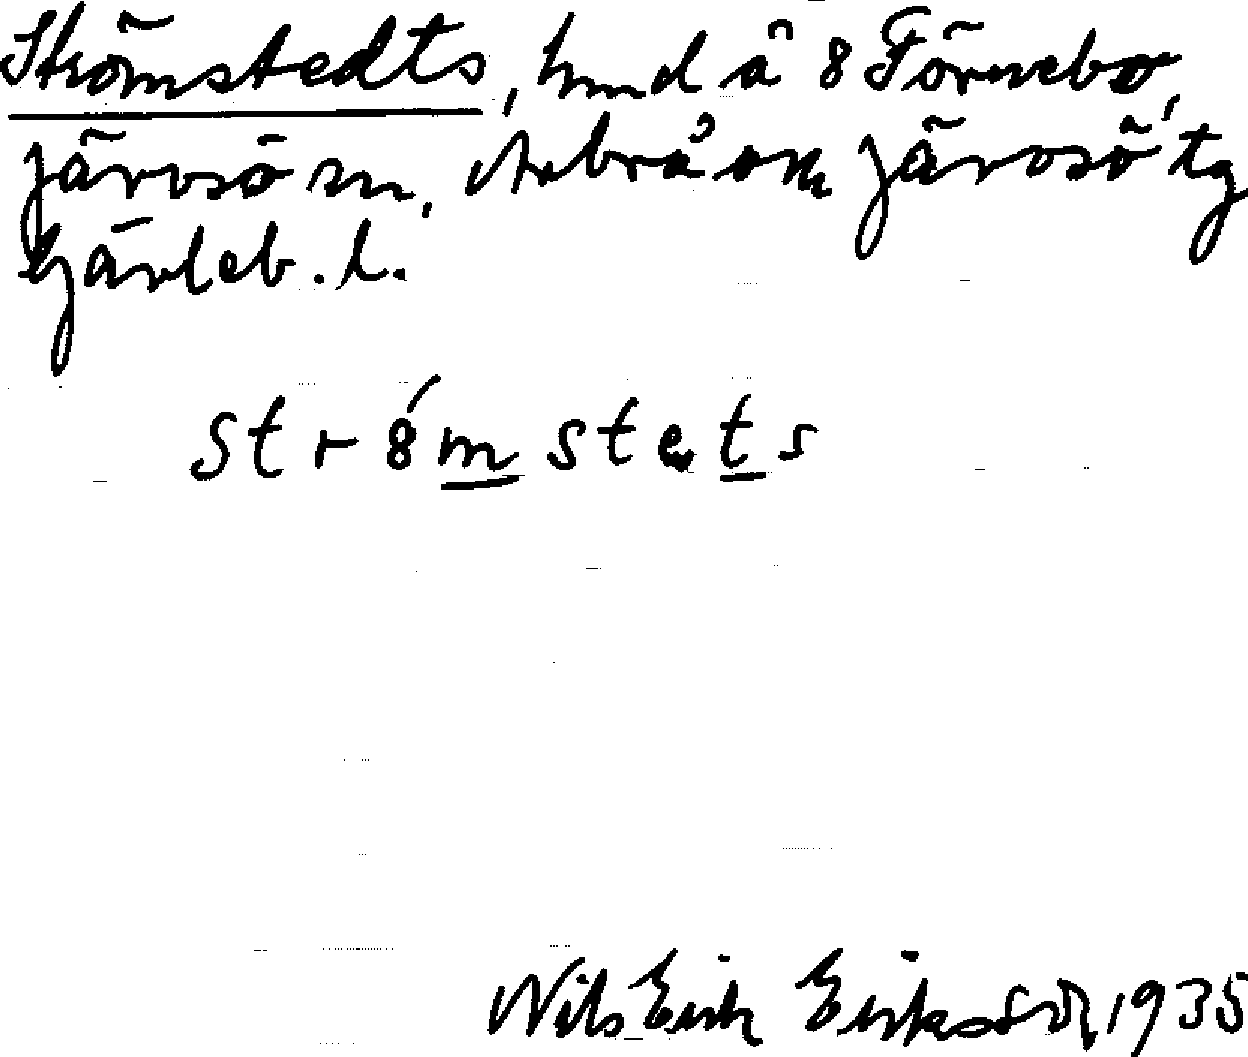 Strömstedts, hmd å 8 Förnebo,
Järvsö sn, Arbrå o Järvsö tg
Gävleb. l.
str8́mstets
Nils Erik Eriksson 1935